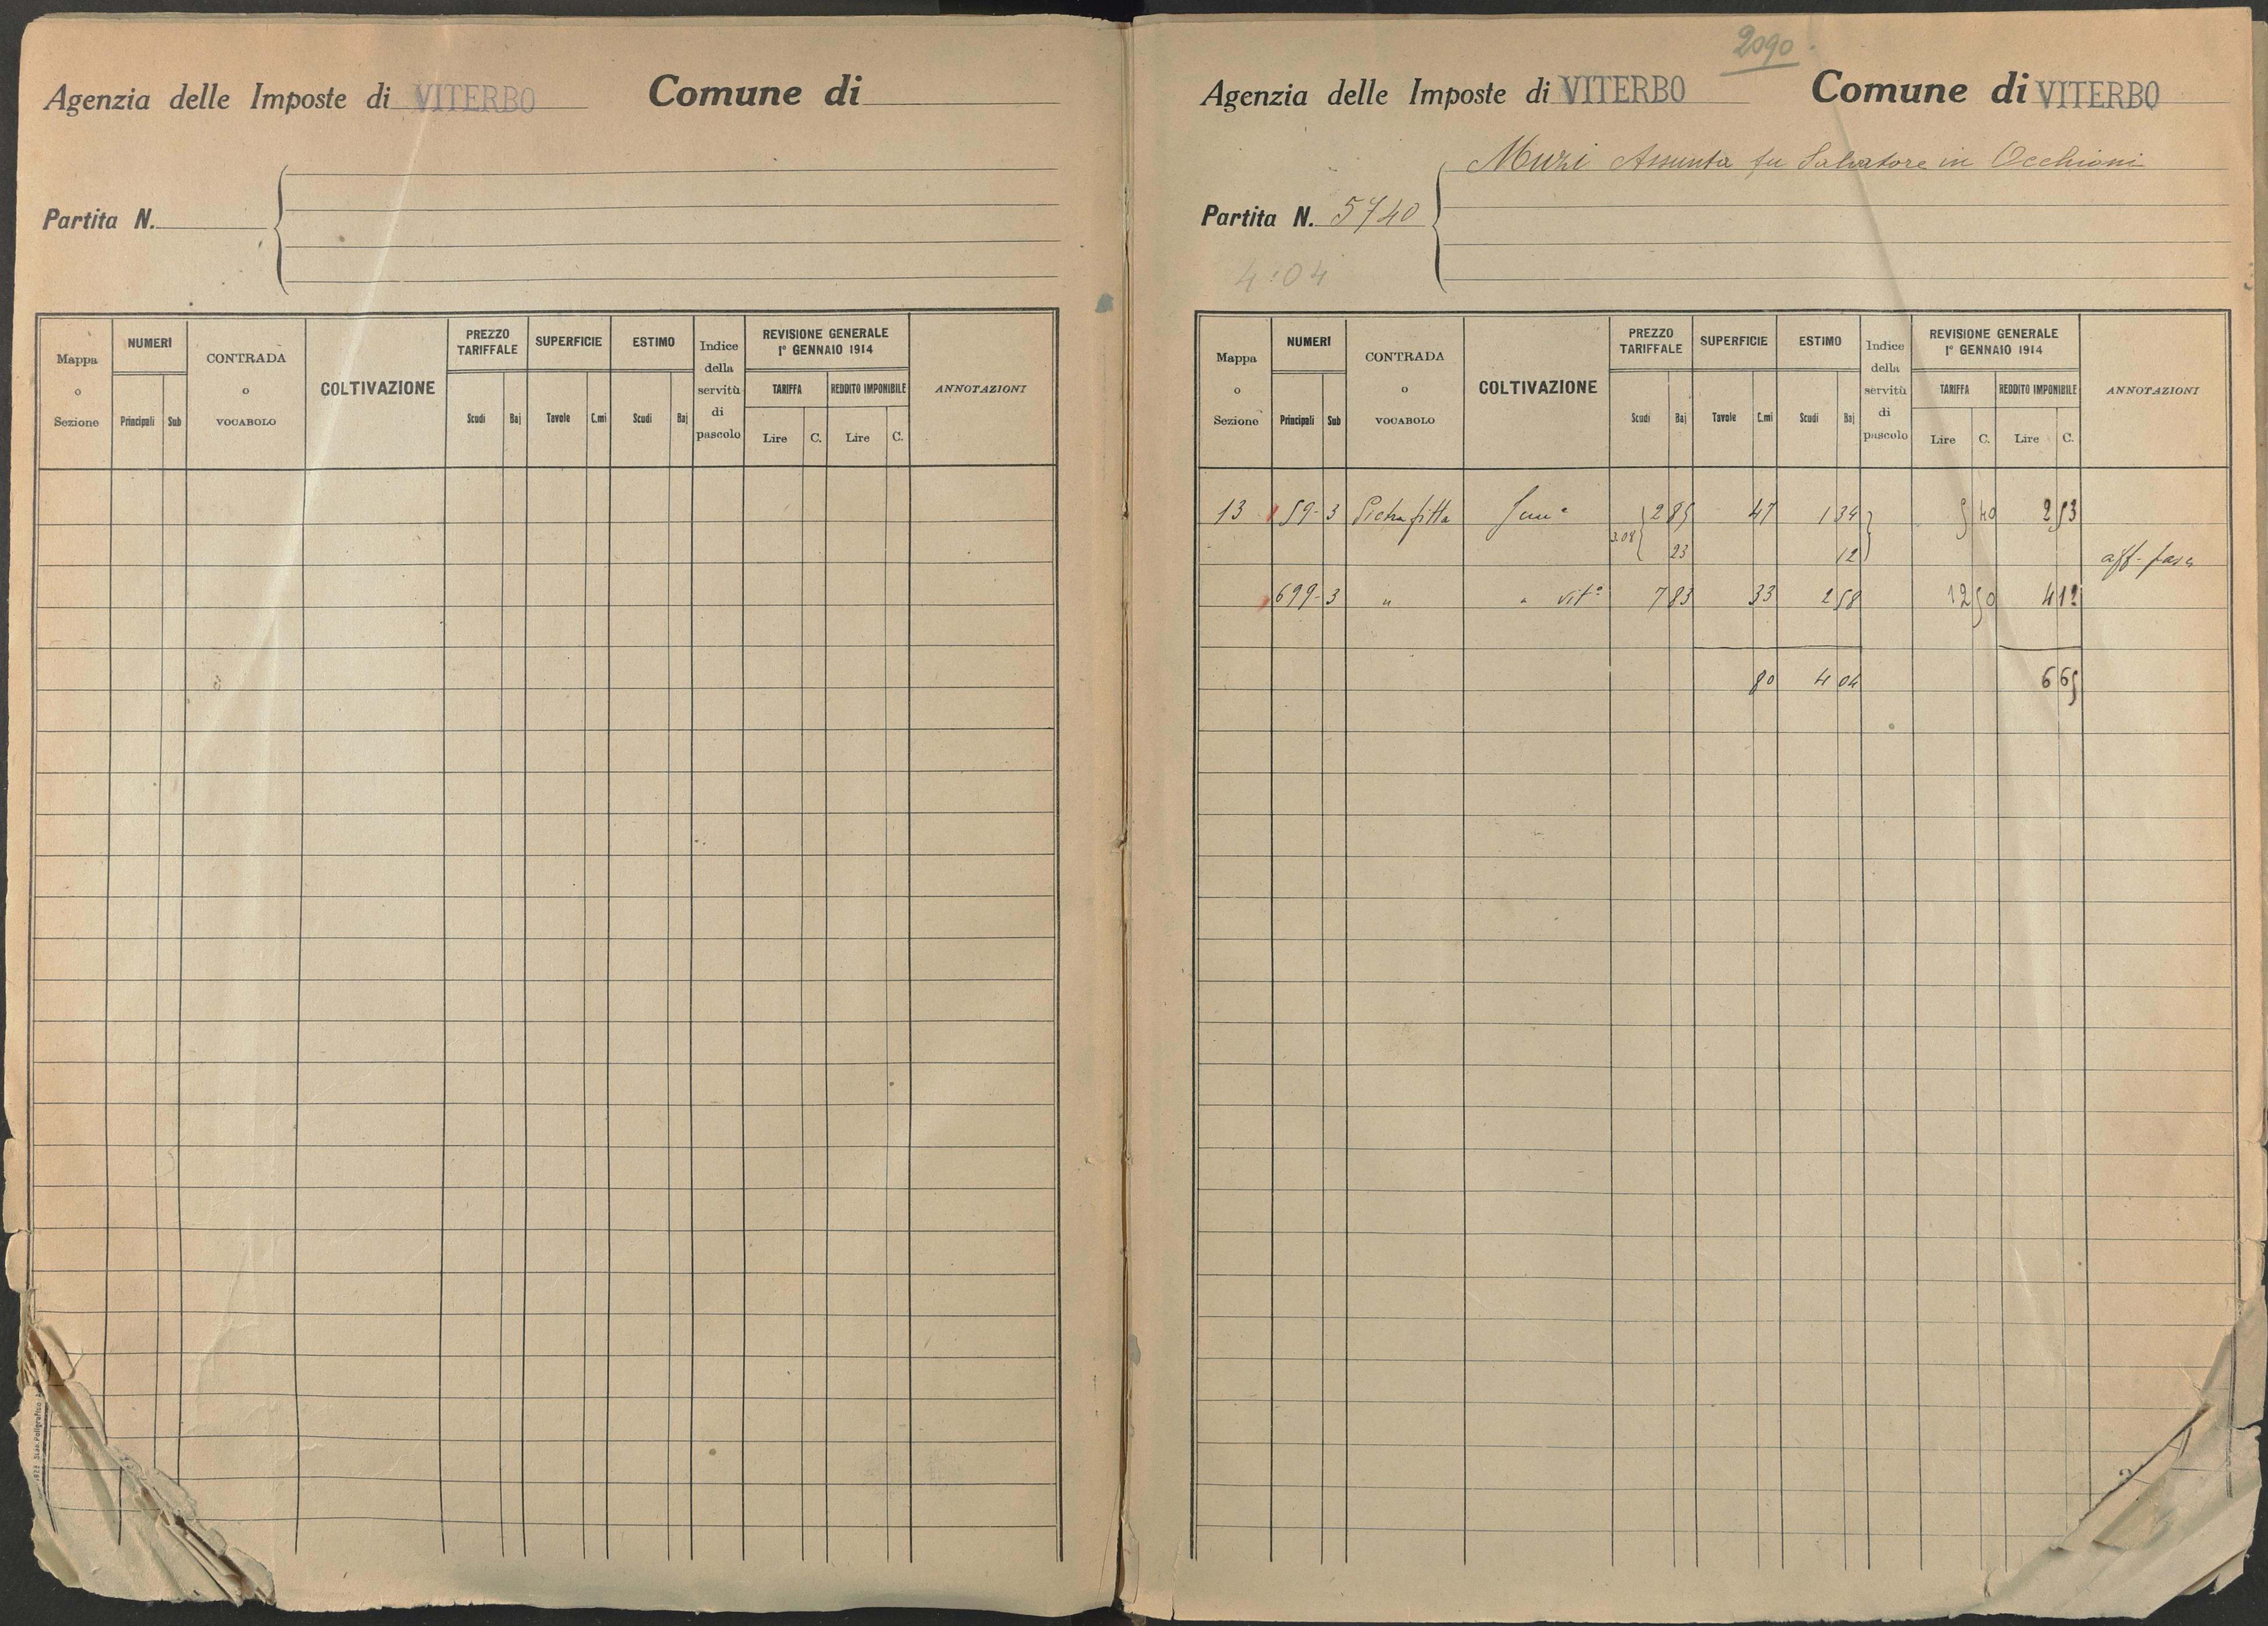 Agenzia delle Imposte di VITERBO Comune di
Partita N.
Mappa o Sezione
NUMERI
Principali Sub
CONTRADA o VOCABOLO
COLTIVAZIONE
PREZZO TARIFFALE
Scudi Baj
SUPERFICIE
Tavole C.mi
ESTIMO
Scudi Baj
Indice della servitù di pascolo
REVISIONE GENERALE
1° GENNAIO 1914
TARIFFA REDDITO IMPONIBILE
Lire C. Lire C.
ANNOTAZIONI
2090
Agenzia delle Imposte di VITERBO Comune di VITERBO
Muzi Assunta fu Salvatore in Occhioni
Partita N. 5740
4:04
Mappa o Sezione
NUMERI
Principali Sub
CONTRADA o VOCABOLO
COLTIVAZIONE
PREZZO TARIFFALE
Scudi Baj
SUPERFICIE
Tavole C.mi
ESTIMO
Scudi Baj
Indice della servitù di pascolo
REVISIONE GENERALE
1° GENNAIO 1914
TARIFFA REDDITO IMPONIBILE
Lire C. Lire C.
ANNOTAZIONI
13 159-3 Pietrafitta 2 85 47 1 34 5 40 2 53
3.08 23 12
699-3 " " vit° 7 83 33 2 58 12 50 4 12
80 4 04 6 65